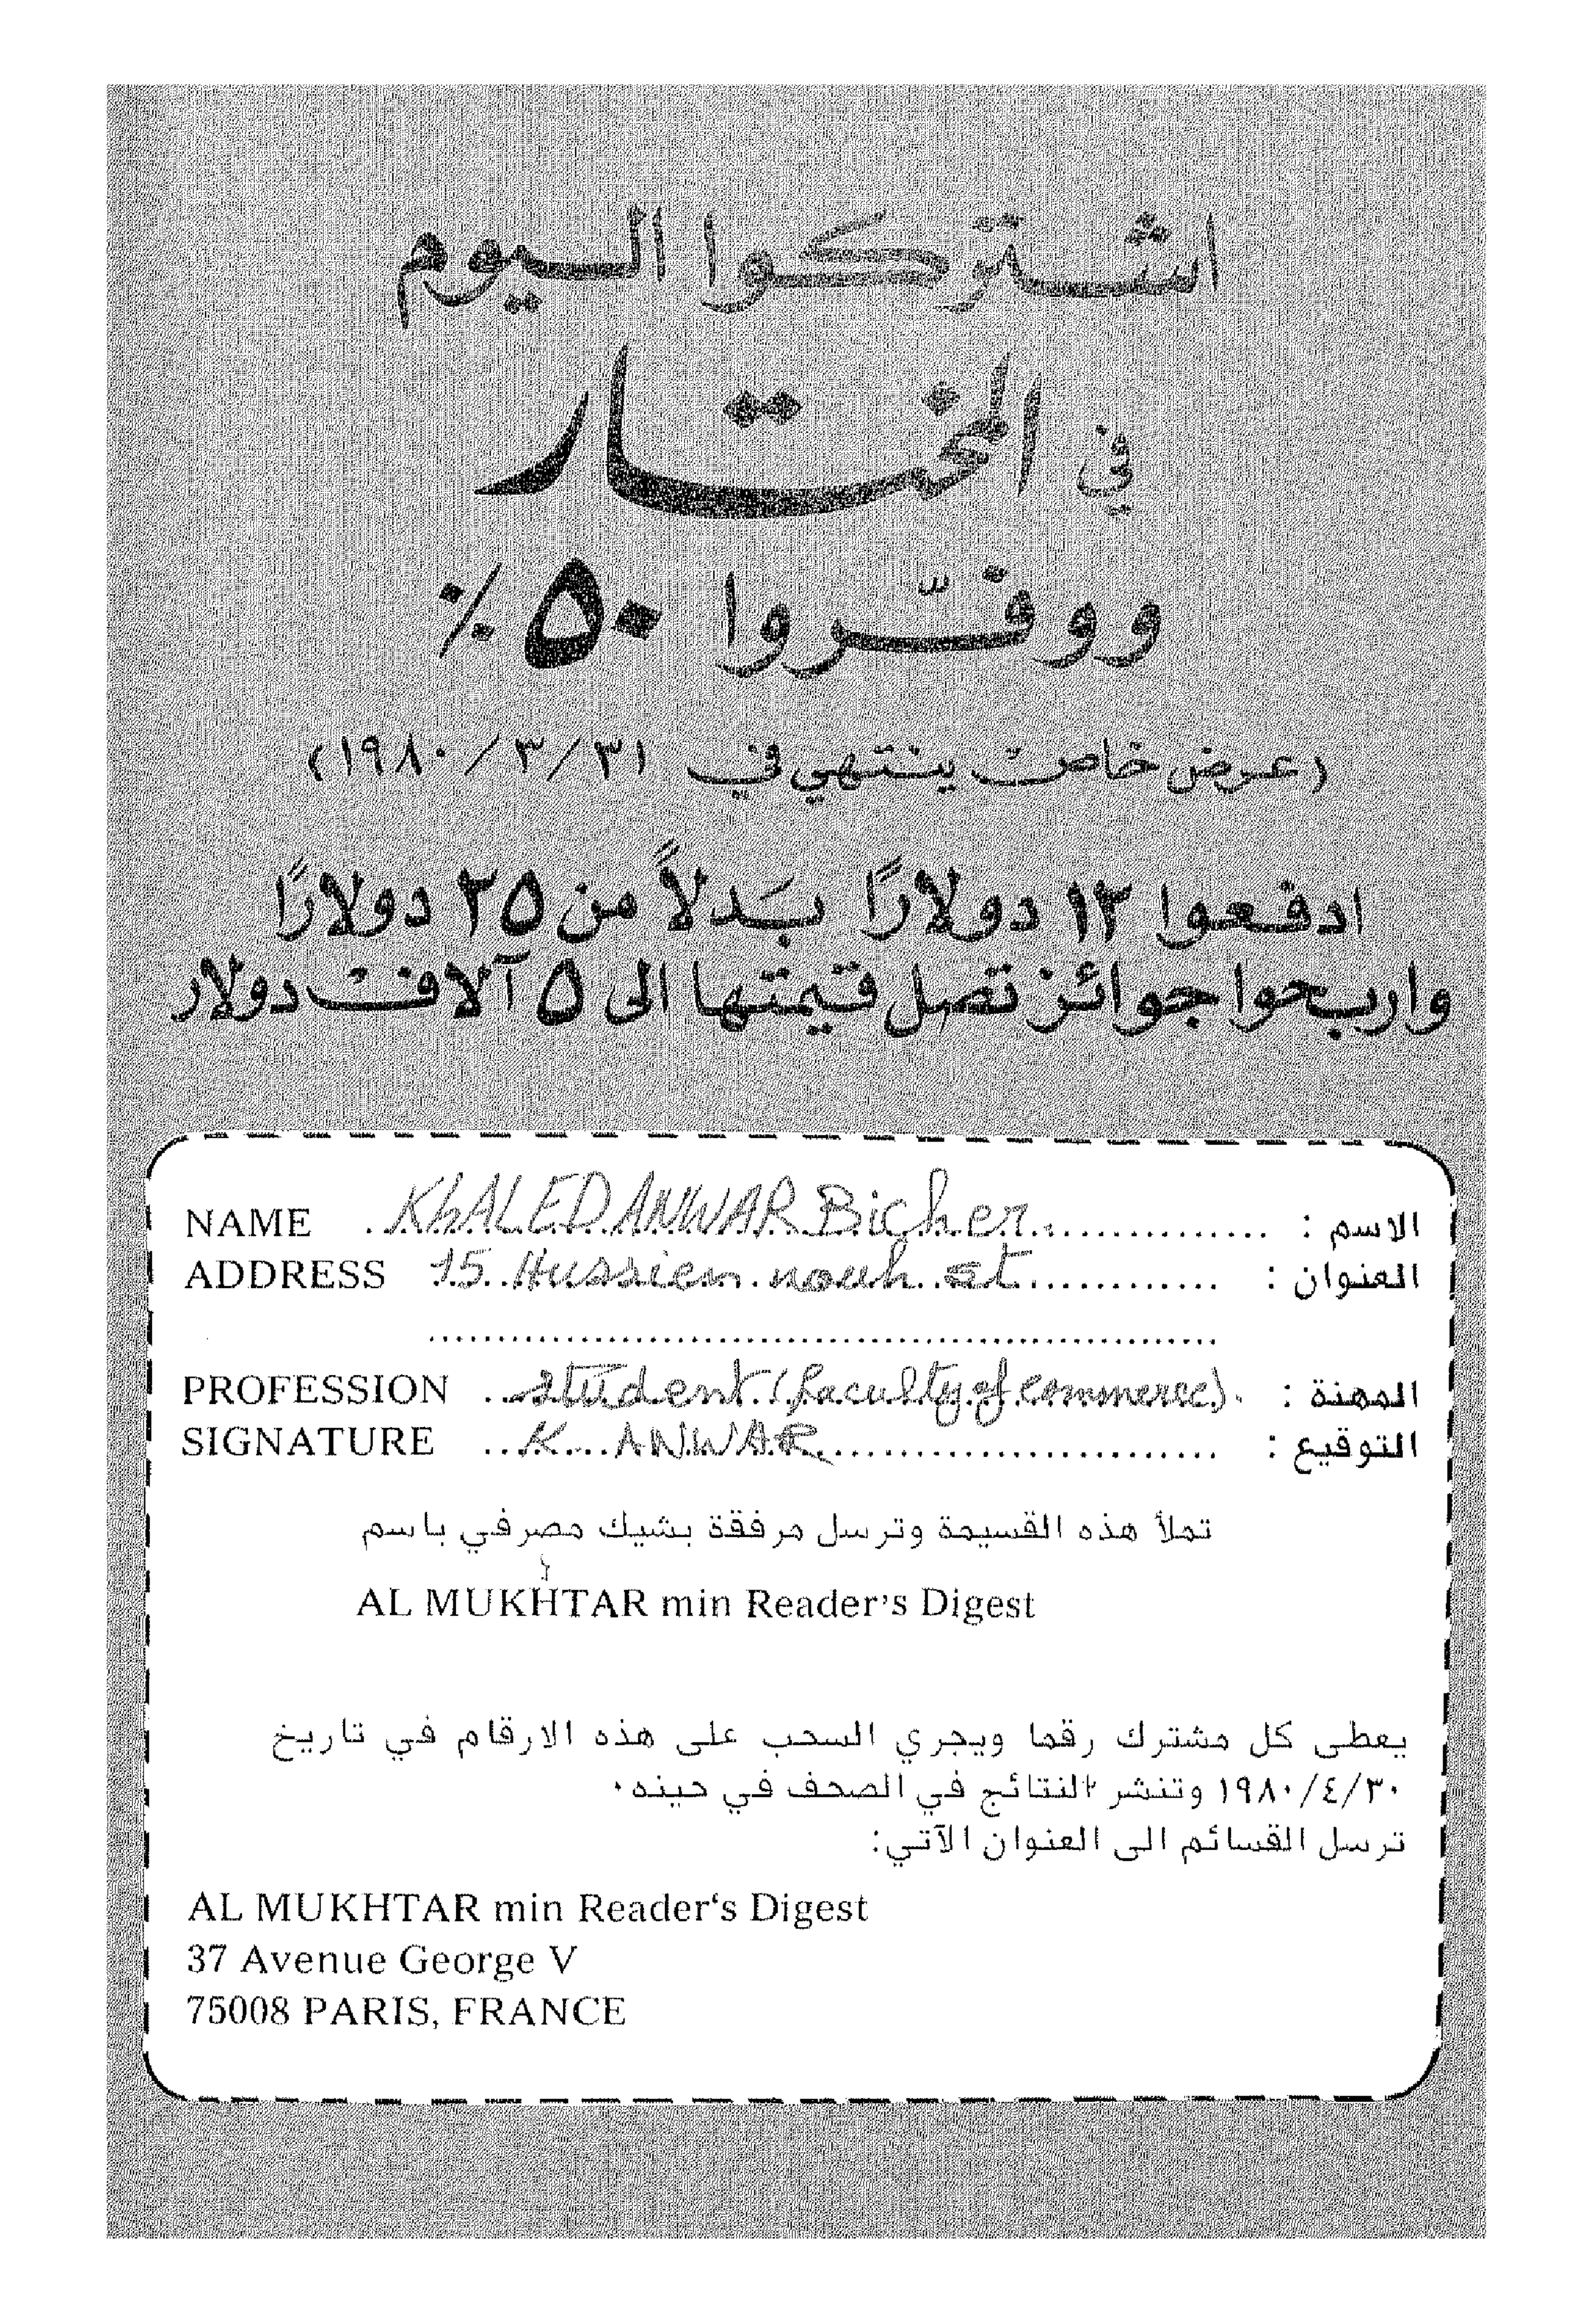 اشتركوا اليوم
في المختار
ووفّروا ٥٠٪
(عرض خاص ينتهي في ٣١/٣/١٩٨٠)
ادفعوا ١٢ دولارًا بَدلاً من ٢٥ دولارًا
واربحوا جوائز تصل قيمتها الى ٥ آلاف دولار
NAME KhALED ANWAR Bicher الاسم :
ADDRESS 15 Hussien nouh st العنوان :
PROFESSION student (faculty of commerce). المهنة :
SIGNATURE K ANWAR التوقيع :
تملأ هذه القسيمة وترسل مرفقة بشيك مصرفي باسم
AL MUKHTAR min Reader's Digest
يعطى كل مشترك رقما ويجري السحب على هذه الارقام في تاريخ
١٩٨٠/٤/٣٠ وتنشر النتائج في الصحف في حينه٠
ترسل القسائم الى العنوان الآتي:
AL MUKHTAR min Reader‘s Digest
37 Avenue George V
75008 PARIS, FRANCE